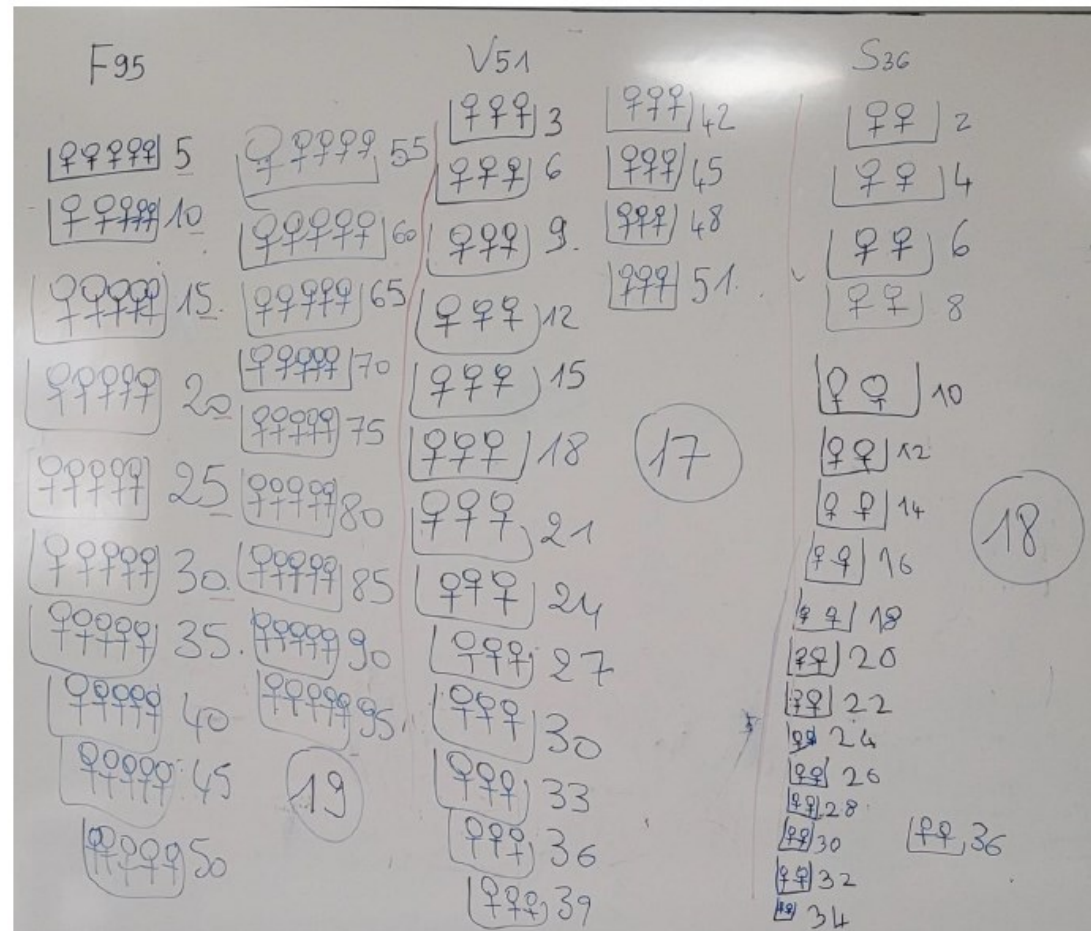 F95
5
10
15.
20
25
30.
35.
40
45
50
55
60
65
70
75
80
85
90
95
19
V51
3
6
9.
12
15
18
21
24
27
30
33
36
39
42
45
48
51.
17
S36
2
4
6
8
10
12
14
16
18
20
22
24
26
28
30
32
34
36
18